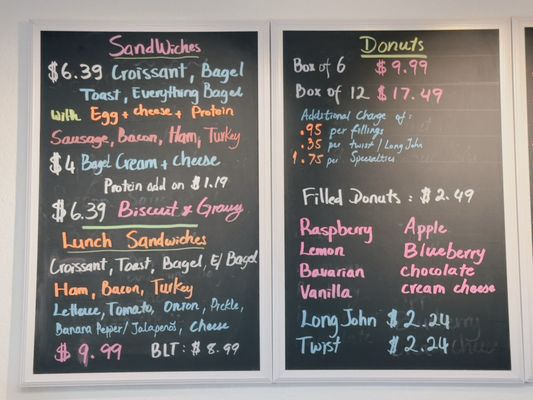 SandWiches
$6.39 Croissant, Bagel
Toast, Everything Bagel
with Egg + cheese + Protein
Sausage, Bacon, Ham, Turkey
$4 Bagel Cream + cheese
Protein add on $1.19
$6.39 Biscuit & Gravy
Lunch Sandwiches
Croissant, Toast, Bagel, E/Bagel
Ham, Bacon, Turkey
Lettuce, Tomato, Onion, Pickle,
Banana Pepper/Jalapeños, cheese
$9.99 BLT: $8.99
Donuts
Box of 6 $9.99
Box of 12 $17.49
Additional Charge of:
.95 per fillings
.35 per twist/Long John
1.75 per Specialties
Filled Donuts: $2.49
Raspberry Apple
Lemon Blueberry
Bavarian chocolate
Vanilla cream cheese
Long John $2.24
Twist $2.24